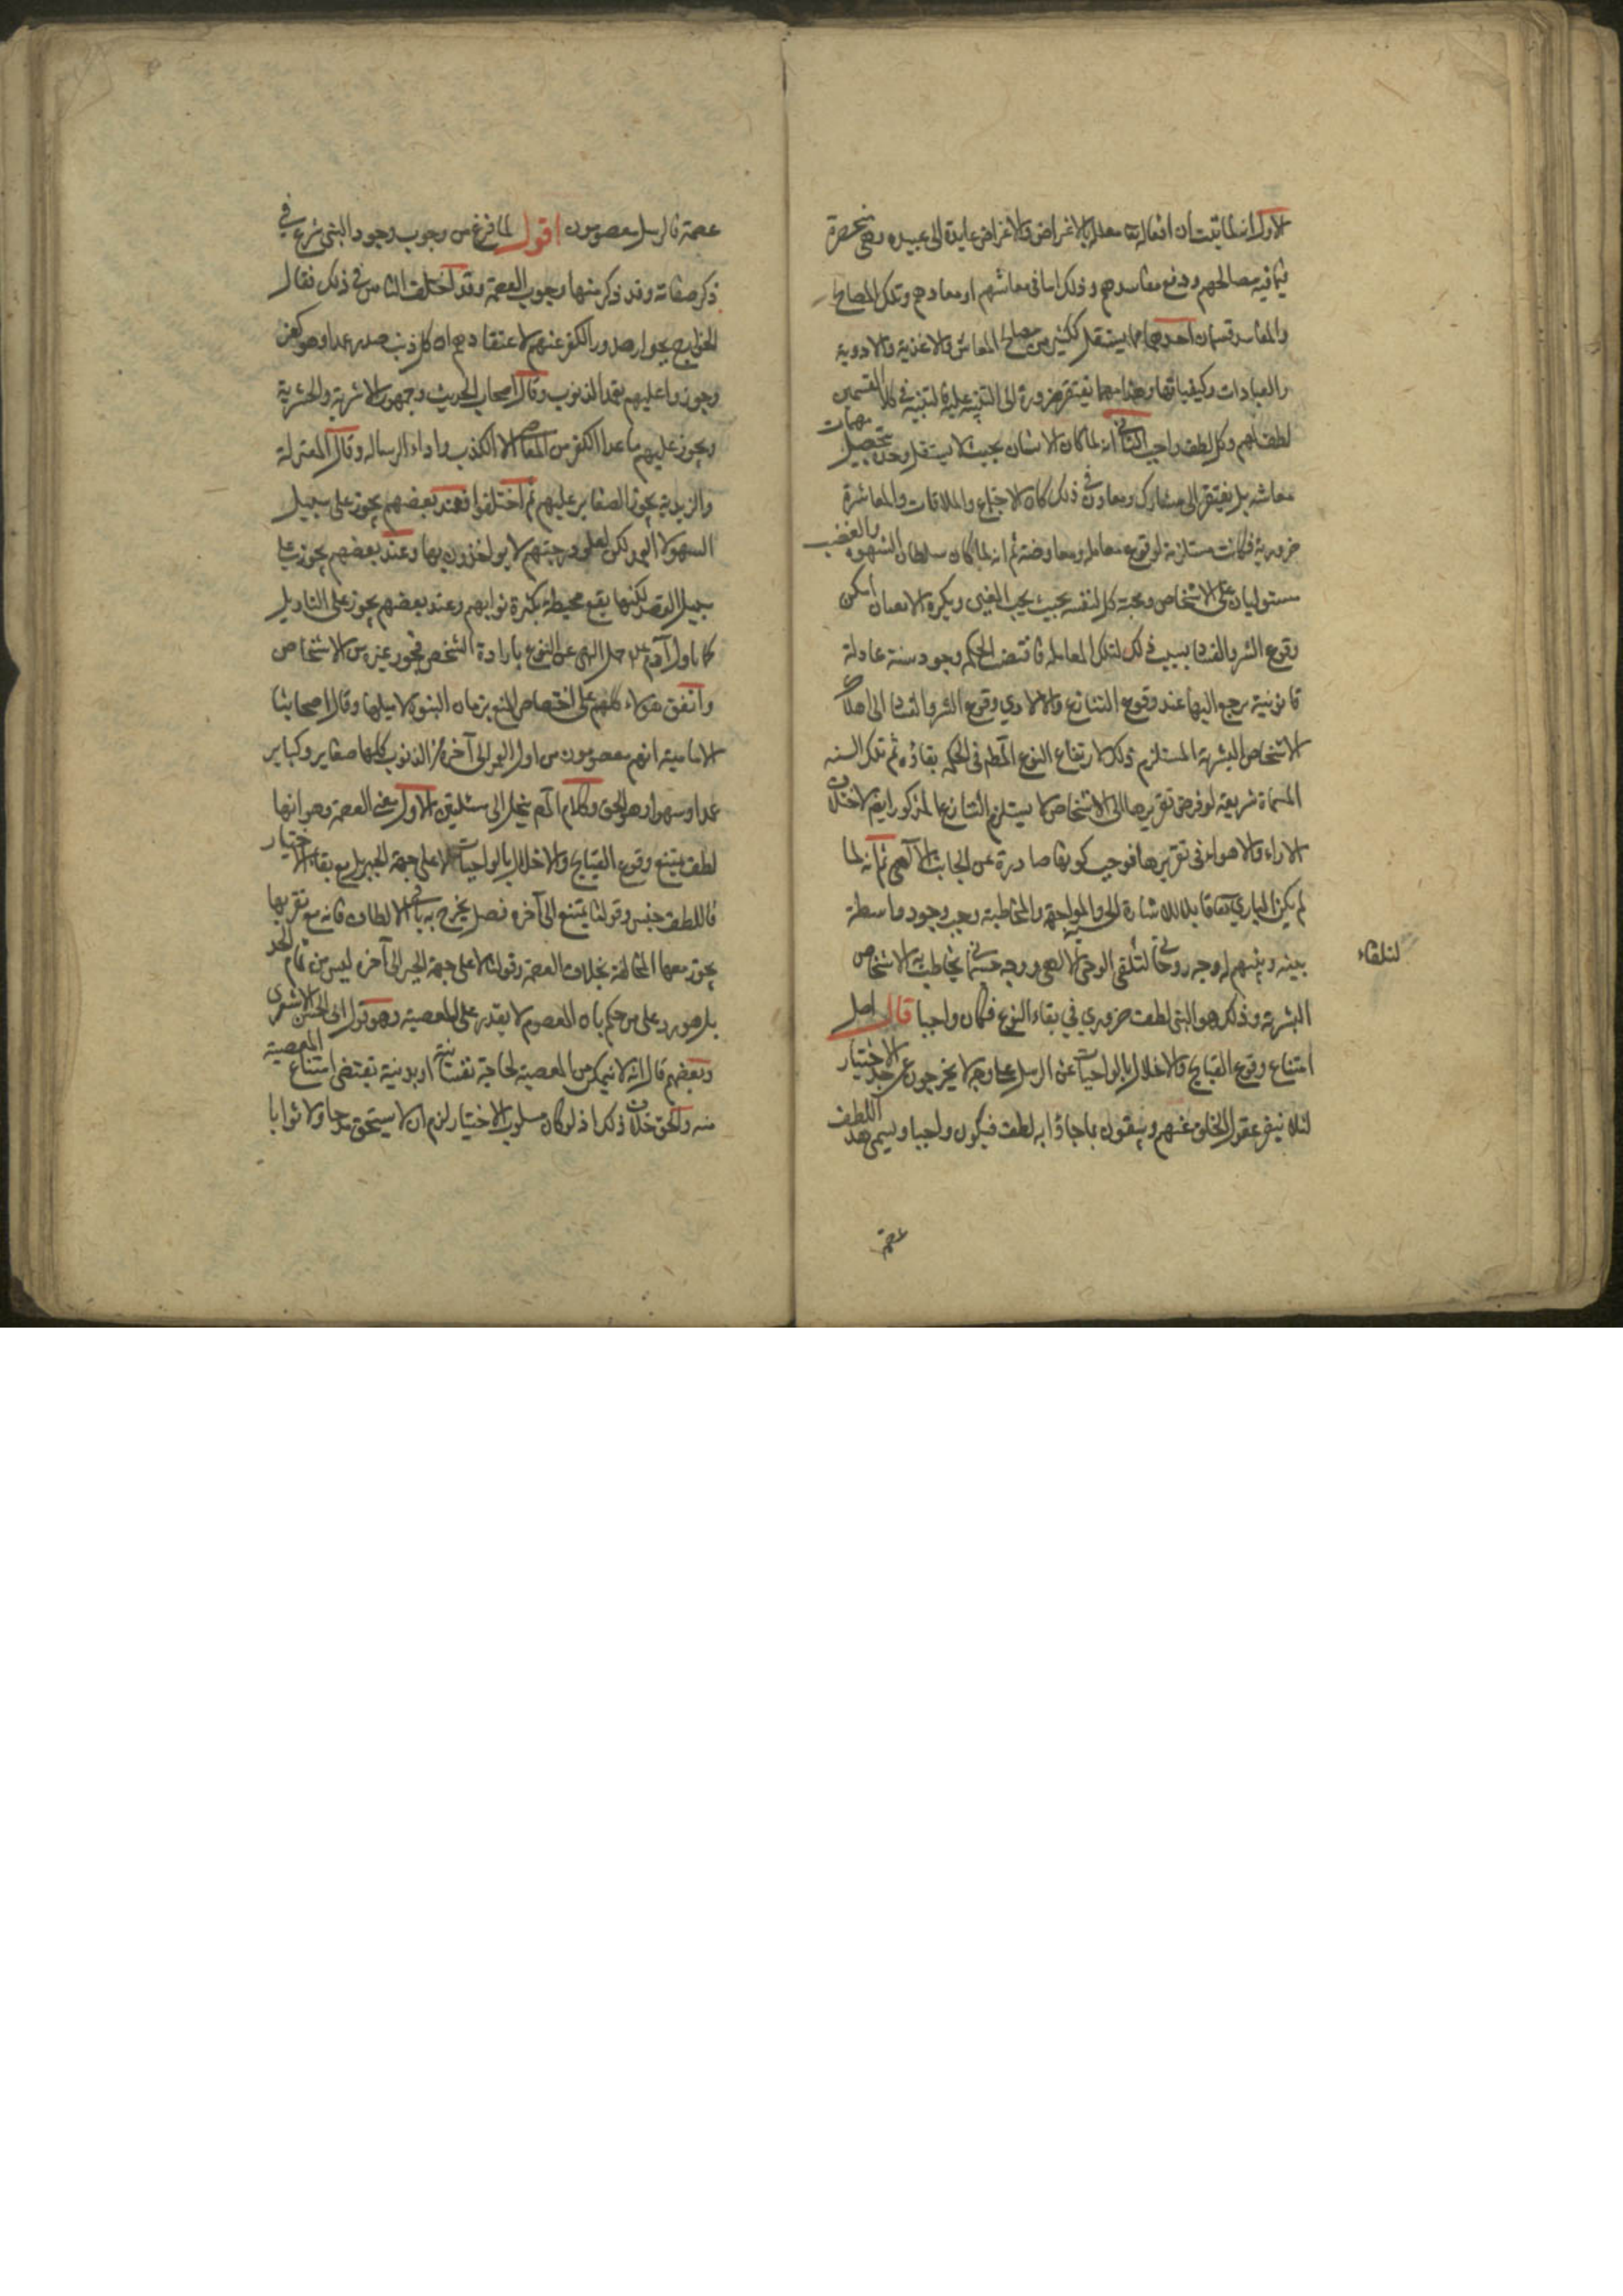 الاول انه لما ثبت ان افعاله تعا معللة بالاغراض والاغراض عايدة الى عبيده وهي منحصرة
فيما فيه مصالحهم ودفع مفاسدهم وذلك اما في معاشهم او معادهم وتلك المصالح
والمفاسد قسمان احدهما ما يستقل ككثير من مصالح المعاش والاغذية والادوية
والعبادات وكيفياتها وهذا مما يفتقر ضرورة الى التنبيه عليه فالتنبيه في كلا القسمين
لطف لهم وكل لطف واجب الثاني انه لما كان الانسان بحيث لا يستقل وحده بتحصيل مهمات
معاشه بل يفتقر الى مشارك ومعاون في ذلك كان الاجتماع والملاقات والمعاشرة
ضرورية فكانت مستلزمة لوقوع معاملة ومعاوضة ثم انه لما كان سلطان الشهوة والغضب
مستوليان على الاشخاص ومحبة كل لنفسه بحيث يحب الغنى ويكره الاذعان امكن
وقوع الشر والفساد بسبب ذلك لتلك المعاملة فاقتضت الحكمة وجود سنة عادلة
قانونية يرجع اليها عند وقوع التنازع والا لادي وقوع الشر والفساد الى اهلاك
الاشخاص البشرية المستلزم ذلك لارتفاع النوع المطلوب في الحكمة بقاؤه ثم تلك السنة
المسماة شريعة لو فرض تقريرها الى الاشخاص لا يستلزم التنازع المذكور ايضا لاختلاف
الاراء والاهواء في تقريرها فوجب كونها صادرة عن الجانب الالهي ثم انه لما
لم يكن الباري تعا قابلا للاشارة الحسية والمواجهة والمخاطبة وجب وجود واسطة
بينه وبينهم له وجه روحاني لتلقي الوحي الالهي ووجه جسماني يخاطب به الاشخاص
لتلقاء
البشرية وذلك هو النبي لطف ضروري في بقاء النوع فكان واجبا قال اصل
امتناع وقوع القبايح والاخلال بالواجبات عن الرسل على وجه لا يخرجون عن حد الاختيار
لئلا ينفر عقول الخلق عنهم ويثقون بما جاؤا به لطف فيكون واجبا ويسمى هذا اللطف
عصمة
عصمة فالرسل معصومون اقول لما فرغ من وجوب وجود النبي شرع في
ذكر صفاته وقد ذكر منها وجوب العصمة وقد اختلف الناس في ذلك فقال
الخوارج بجواز صدور الكفر عنهم لاعتقادهم ان كل ذنب صدر عمدا وهو كفر
وجوزوا عليهم تعمد الذنوب وقال اصحاب الحديث وجمهور الاشعرية والحشوية
ويجوز عليهم ما عدا الكفر من المعاصي الا الكذب واداء الرسالة وقال المعتزلة
والزيدية يجوز الصغاير عليهم ثم اختلفوا فعند بعضهم يجوز على سبيل
السهو لا العمد ولكن لعلو درجتهم لا يواخذون بها وعند بعضهم يجوز على
سبيل القصد لكنها يقع محبطة بكثرة ثوابهم وعند بعضهم يجوز على التاويل
كما تاول آدم ع حمل النهي عن النوع بارادة الشخص فيجوز غيره من الاشخاص
واتفق هؤلاء كلهم على اختصاص المنع بزمان النبوة لا قبلها وقال اصحابنا
الامامية انهم معصومون من اول العمر الى آخره من الذنوب كلها صغاير وكباير
عمدا وسهوا وهو الحق وكلام المص ينحل الى مسئلتين الاول معنى العصمة وهو انها
لطف يمتنع وقوع القبايح والاخلال بالواجبات لا على جهة الجبر بل مع بقاء الاختيار
فاللطف جنس وقولنا يمتنع الى آخره فصل يخرج به باقي الالطاف فانه مع تقريبها
يجوز معها المخالفة بخلاف العصمة وقولنا لا على جهة الجبر الى آخره ليس من تمام الحد
بل هو رد على من حكم بان المعصوم لا يقدر على المعصية وهو قول ابي الحسن الاشعري
وبعضهم قال انه لا يتمكن من المعصية لخاصية نفسانية او بدنية تقتضي امتناع المعصية
منه والحق خلاف ذلك اذ لو كان مسلوب الاختيار لزم ان لا يستحق مدحا ولا ثوابا